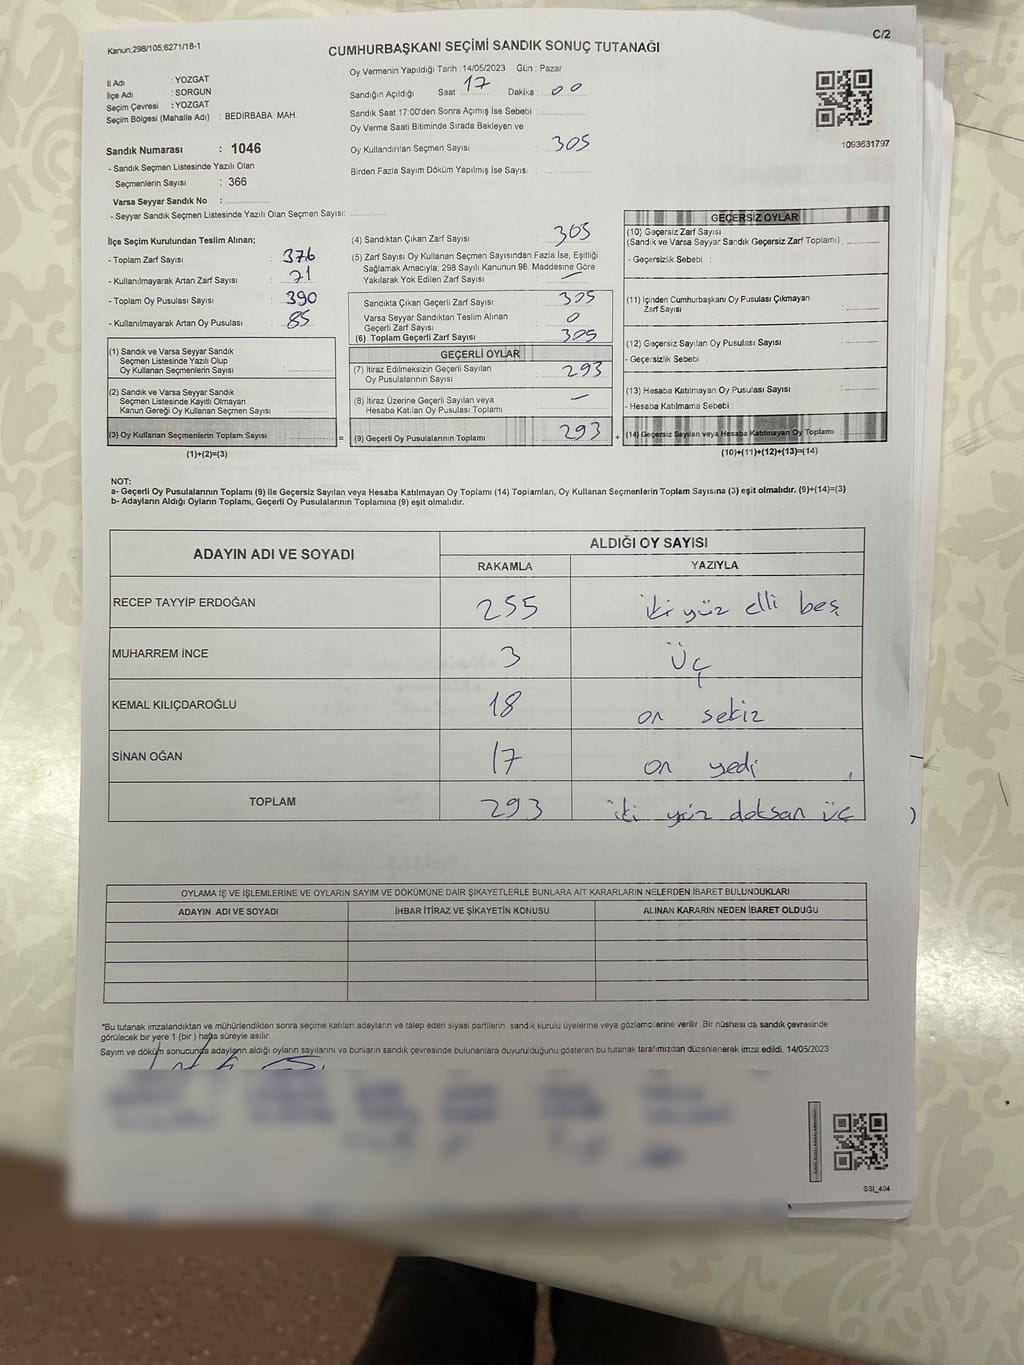 Kanun,298/105;6271/18-1
C/2
CUMHURBAŞKANI SEÇİMİ SANDIK SONUÇ TUTANAĞI
İl Adı : YOZGAT
İlçe Adı : SORGUN
Seçim Çevresi : YOZGAT
Seçim Bölgesi (Mahalle Adı) : BEDİRBABA MAH.
Oy Vermenin Yapıldığı Tarih : 14/05/2023 Gün : Pazar
Sandığın Açıldığı Saat : 17 Dakika : 00
Sandık Saat 17:00'den Sonra Açımış İse Sebebi :
Oy Verme Saati Bitiminde Sırada Bekleyen ve
Oy Kullandırılan Seçmen Sayısı : 305
Birden Fazla Sayım Döküm Yapılmış İse Sayısı :
1093631797
Sandık Numarası : 1046
- Sandık Seçmen Listesinde Yazılı Olan
Seçmenlerin Sayısı : 366
Varsa Seyyar Sandık No :
- Seyyar Sandık Seçmen Listesinde Yazılı Olan Seçmen Sayısı:
İlçe Seçim Kurulundan Teslim Alınan;
- Toplam Zarf Sayısı : 376
- Kullanılmayarak Artan Zarf Sayısı : 71
- Toplam Oy Pusulası Sayısı : 390
- Kullanılmayarak Artan Oy Pusulası : 85
(1) Sandık ve Varsa Seyyar Sandık
Seçmen Listesinde Yazılı Olup
Oy Kullanan Seçmenlerin Sayısı :
(2) Sandık ve Varsa Seyyar Sandık
Seçmen Listesinde Kayıtlı Olmayan
Kanun Gereği Oy Kullanan Seçmen Sayısı :
(3) Oy Kullanan Seçmenlerin Toplam Sayısı :
(1)+(2)=(3)
(4) Sandıktan Çıkan Zarf Sayısı : 305
(5) Zarf Sayısı Oy Kullanan Seçmen Sayısından Fazla İse, Eşitliği
Sağlamak Amacıyla, 298 Sayılı Kanunun 98. Maddesine Göre
Yakılarak Yok Edilen Zarf Sayısı : —
Sandıkta Çıkan Geçerli Zarf Sayısı : 305
Varsa Seyyar Sandıktan Teslim Alınan
Geçerli Zarf Sayısı : 0
(6) Toplam Geçerli Zarf Sayısı : 305
GEÇERLİ OYLAR
(7) İtiraz Edilmeksizin Geçerli Sayılan
Oy Pusulalarının Sayısı : 293
(8) İtiraz Üzerine Geçerli Sayılan veya
Hesaba Katılan Oy Pusulası Toplamı : —
= (9) Geçerli Oy Pusulalarının Toplamı : 293
GEÇERSİZ OYLAR
(10) Geçersiz Zarf Sayısı
(Sandık ve Varsa Seyyar Sandık Geçersiz Zarf Toplamı) :
- Geçersizlik Sebebi :
(11) İçinden Cumhurbaşkanı Oy Pusulası Çıkmayan
Zarf Sayısı :
(12) Geçersiz Sayılan Oy Pusulası Sayısı :
- Geçersizlik Sebebi :
(13) Hesaba Katılmayan Oy Pusulası Sayısı :
- Hesaba Katılmama Sebebi :
+ (14) Geçersiz Sayılan veya Hesaba Katılmayan Oy Toplamı :
(10)+(11)+(12)+(13)=(14)
NOT:
a- Geçerli Oy Pusulalarının Toplamı (9) ile Geçersiz Sayılan veya Hesaba Katılmayan Oy Toplamı (14) Toplamları, Oy Kullanan Seçmenlerin Toplam Sayısına (3) eşit olmalıdır. (9)+(14)=(3)
b- Adayların Aldığı Oyların Toplamı, Geçerli Oy Pusulalarının Toplamına (9) eşit olmalıdır.
ADAYIN ADI VE SOYADI ALDIĞI OY SAYISI
RAKAMLA YAZIYLA
RECEP TAYYİP ERDOĞAN 255 iki yüz elli beş
MUHARREM İNCE 3 üç
KEMAL KILIÇDAROĞLU 18 on sekiz
SİNAN OĞAN 17 on yedi
TOPLAM 293 iki yüz doksan üç
OYLAMA İŞ VE İŞLEMLERİNE VE OYLARIN SAYIM VE DÖKÜMÜNE DAİR ŞİKAYETLERLE BUNLARA AİT KARARLARIN NELERDEN İBARET BULUNDUKLARI
ADAYIN ADI VE SOYADI İHBAR İTİRAZ VE ŞİKAYETİN KONUSU ALINAN KARARIN NEDEN İBARET OLDUĞU
*Bu tutanak imzalandıktan ve mühürlendikten sonra seçime katılan adayların ve talep eden siyasi partilerin sandık kurulu üyelerine veya gözlemcilerine verilir. Bir nüshası da sandık çevresinde
görülecek bir yere 1 (bir) hafta süreyle asılır.
Sayım ve döküm sonucunda adayların aldığı oyların sayılarını ve bunların sandık çevresinde bulunanlara duyurulduğunu gösteren bu tutanak tarafımızdan düzenlenerek imza edildi. 14/05/2023
SSI_404